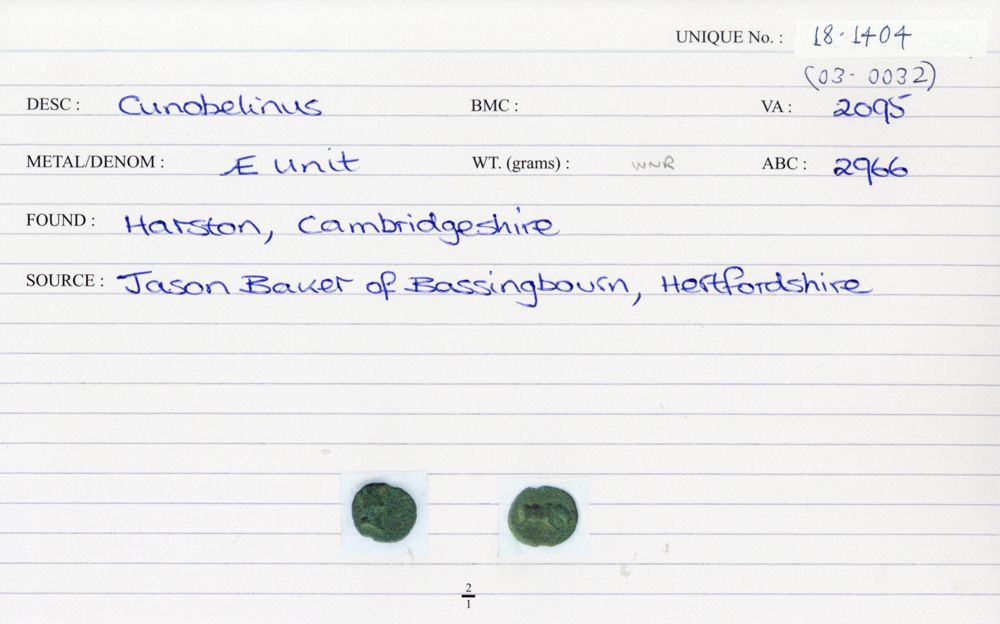 UNIQUE No. : 18-1404
(03-0032)
DESC : Cunobelinus BMC : VA : 2095
METAL/DENOM : Æ Unit WT. (grams) : WNR ABC : 2966
FOUND : Harston, Cambridgeshire
SOURCE : Jason Baker of Bassingbourn, Hertfordshire
2
1